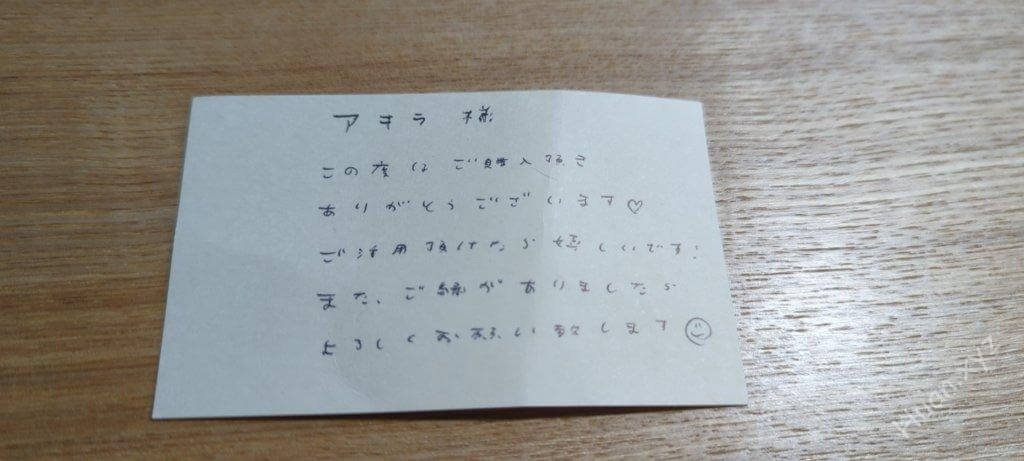 アキラ 様
この度はご購入頂き
ありがとうございます♡
ご活用頂けたら嬉しいです!
また、ご縁がありましたら
よろしくお願い致します☺
Hnon.xyz